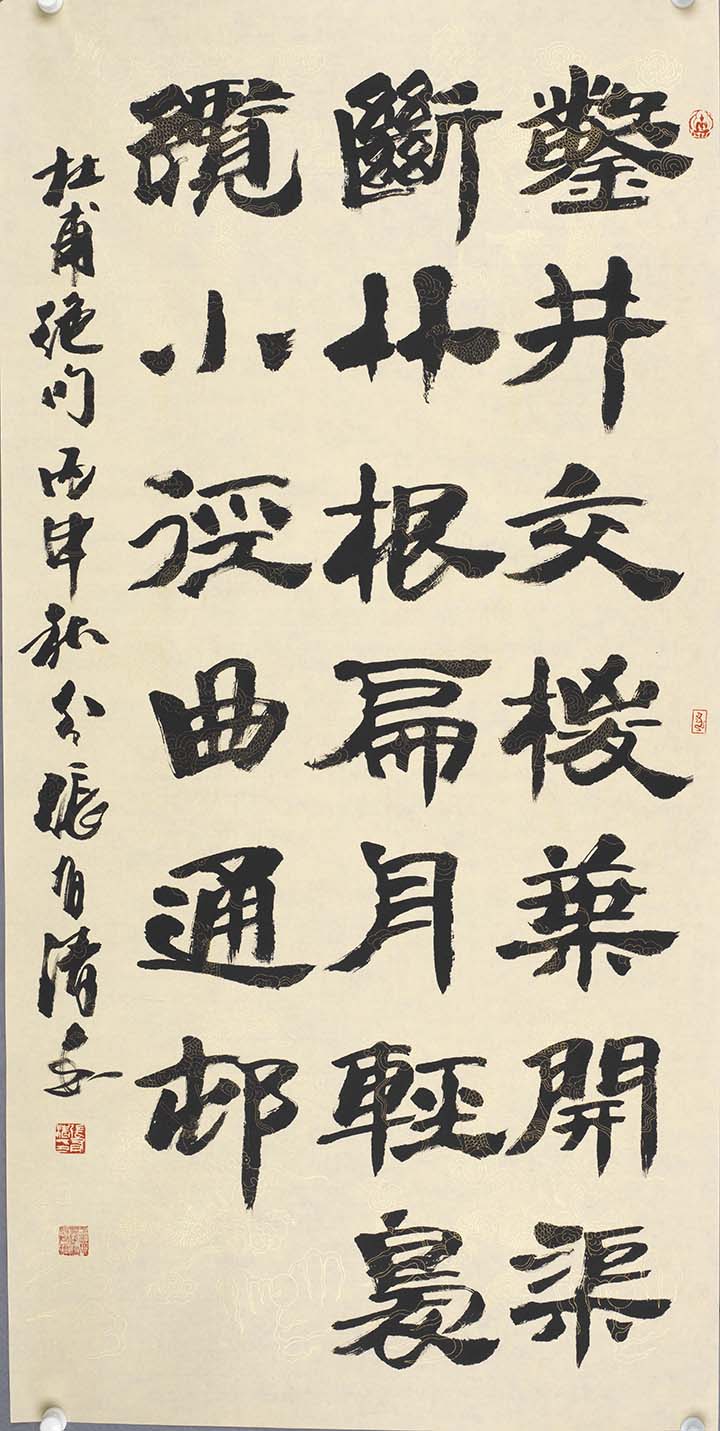 鑿井交椶葉開渠
斷竹根扁舟輕裊
纜小徑曲通邨
杜甫絕句丙申秋分張有清書